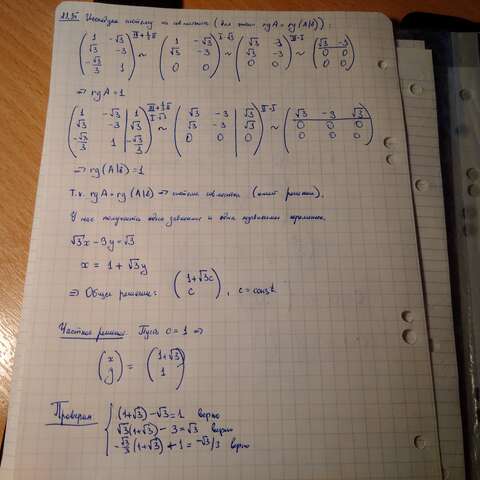 Исследуем систему на совместность (для этого rg A = rg (A|b)):
(1 -√3; √3 -3; -√3/3 1) III+1/3 II ~ (1 -√3; √3 -3; 0 0) I·√3 ~ (√3 -3; √3 -3; 0 0) II-I ~ (√3 -3; 0 0; 0 0)
⇒ rg A = 1
(1 -√3 | 1; √3 -3 | √3; -√3/3 1 | -√3/3) III+1/3 II I·√3 ~ (√3 -3 | √3; √3 -3 | √3; 0 0 | 0) II-I ~ (√3 -3 √3; 0 0 0; 0 0 0)
⇒ rg (A|b) = 1
Т.к. rg A = rg (A|b) ⇒ система совместна (имеет решения).
У нас получается одна зависимая и одна независимая переменная.
√3x - 3y = √3
x = 1 + √3y
⇒ Общее решение: (1+√3c; c), c = const
Частное решение: Пусть c = 1 ⇒
(x; y) = (1+√3; 1)
Проверим: { (1+√3) - √3 = 1 верно
√3(1+√3) - 3 = √3 верно
-√3/3 (1+√3) + 1 = -√3/3 верно